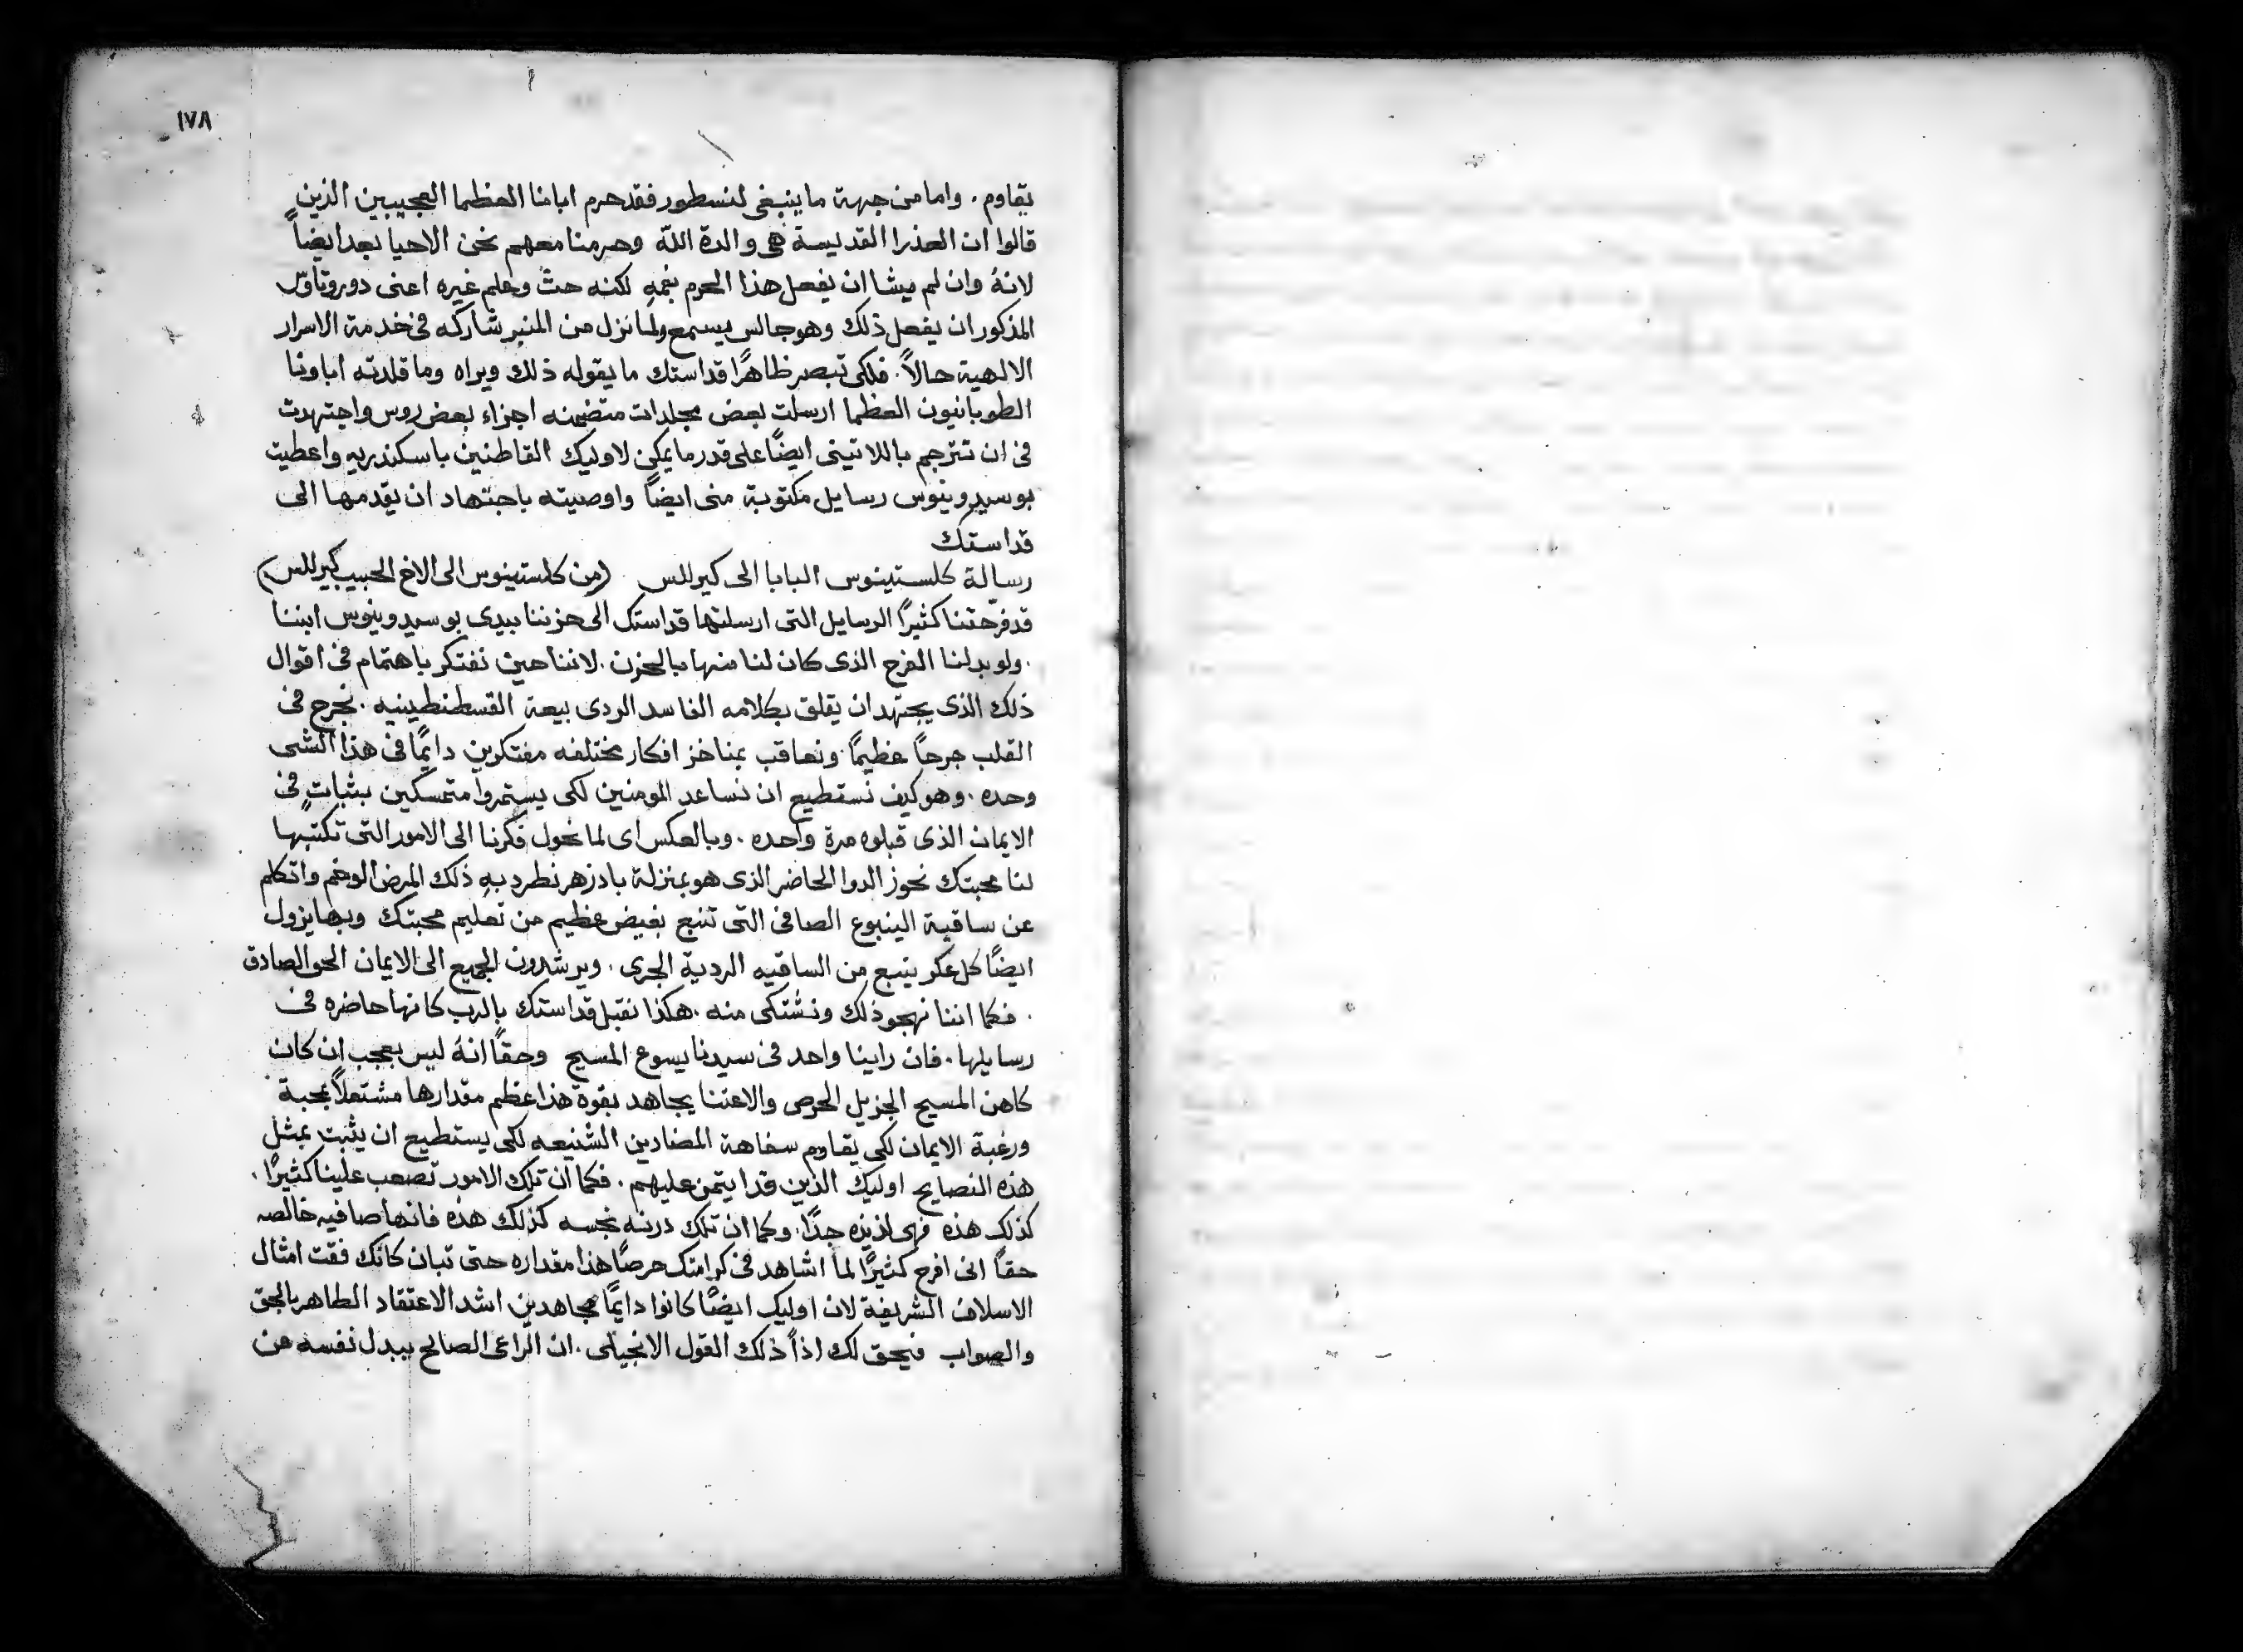 ١٧٨
يقاوم . واما من جهة ما ينبغى لنسطور فقد حرم ابانا العظما العجيبين الذين
قالوا ان العذرا القديسة هى والدة الله وحرمنا معهم نحن الاحيا بعد ايضاً
لانهُ وان لم يشا ان يفعل هذا الحرم بفمهِ لكنه حث وعلم غيره اعنى دوروتاوس
المذكور ان يفعل ذلك وهو جالس يسمع ولما نزل من المنبر شاركه فى خدمة الاسرار
الالهية حالاً . فلكى تبصر ظاهرًا قداستك ما يقوله ذلك ويراه وما قلدته اباونا
الطوبانيون العظما ارسلت بعض مجلدات متضمنه اجزاء بعض روس واجتهدت
فى ان تترجم باللاتينى ايضًا على قدر ما يمكن لاوليك القاطنين باسكندريه واعطيت
بوسيدونيوس رسايل مكتوبة منى ايضًا واوصيته باجتهاد ان يقدمها الى
قداستك
رسالة كلستينوس البابا الى كيرللس . (من كلستينوس الى الاخ الحبيب كيرللس)
قد فرّحتنا كثيرًا الرسايل التى ارسلتها قداستك الى حزننا بيدى بوسيدونيوس ابننا
. ولو بدلنا الفرح الذى كان لنا منها بالحزن . لاننا حين نفتكر باهتمام فى اقوال
ذلك الذى يجتهد ان يقلق بكلامه الفاسد الردى بيعة القسطنطينيه . نجرح فى
القلب جرحاً عظيمًا . ونعاقب بمناخز افكار مختلفه مفتكرين دايمًا فى هذا الشى
وحده . وهو كيف نستطيع ان نساعد المومنين لكى يستمروا متمسكين بثباتٍ فى
الايمان الذى قبلوه مرة واحده . وبالعكس اى لما نحول فكرنا الى الامور التى تكتبها
لنا محبتك نحوز الدوا الحاضر الذى هو بمنزلة بادزهر نطرد بهِ ذلك المرض الوخم واتكلم
عن ساقية الينبوع الصافى التى تنبع بفيض عظيم من تعليم محبتك وبها يزول
ايضًا كل عكر ينبع من الساقيه الردية الجرى . ويرشدون الجميع الى الايمان الحق الصادق
. فكما اننا نهجو ذلك ونشتكى منه . هكذا نقبل قداستك بالرب كانها حاضره فى
رسايلها . فان راينا واحد فى سيدنا يسوع المسيح وحقًا انهُ ليس بعجب ان كان
كاهن المسيح الجزيل الحرص والاعتنا يجاهد بقوة هذا عظم مقدارها مشتعلاً بمحبة
ورغبة الايمان لكى يقاوم سفاهة المضادين الشنيعه لكى يستطيع ان يثبت بمثل
هذه النصايح اوليك الذين قد ايتمن عليهم . فكما ان تلك الامور تصعب علينا كثيرًا .
كذلك هذه فهى لذيذه جدًا . وكما ان تلك درنه نجسه كذلك هذه فانها صافيه خالصه
حقًا انى افرح كثيرًا لما اشاهد فى كرامتك حرصًا هذا مقداره حتى تبان كانك فقت امثال
الاسلاف الشريفة لان اوليك ايضًا كانوا دايمًا مجاهدين اشد الاعتقاد الطاهر بالحق
والصواب فيحق لك اذاً ذلك القول الانجيلى . ان الراعى الصالح يبدل نفسه عن